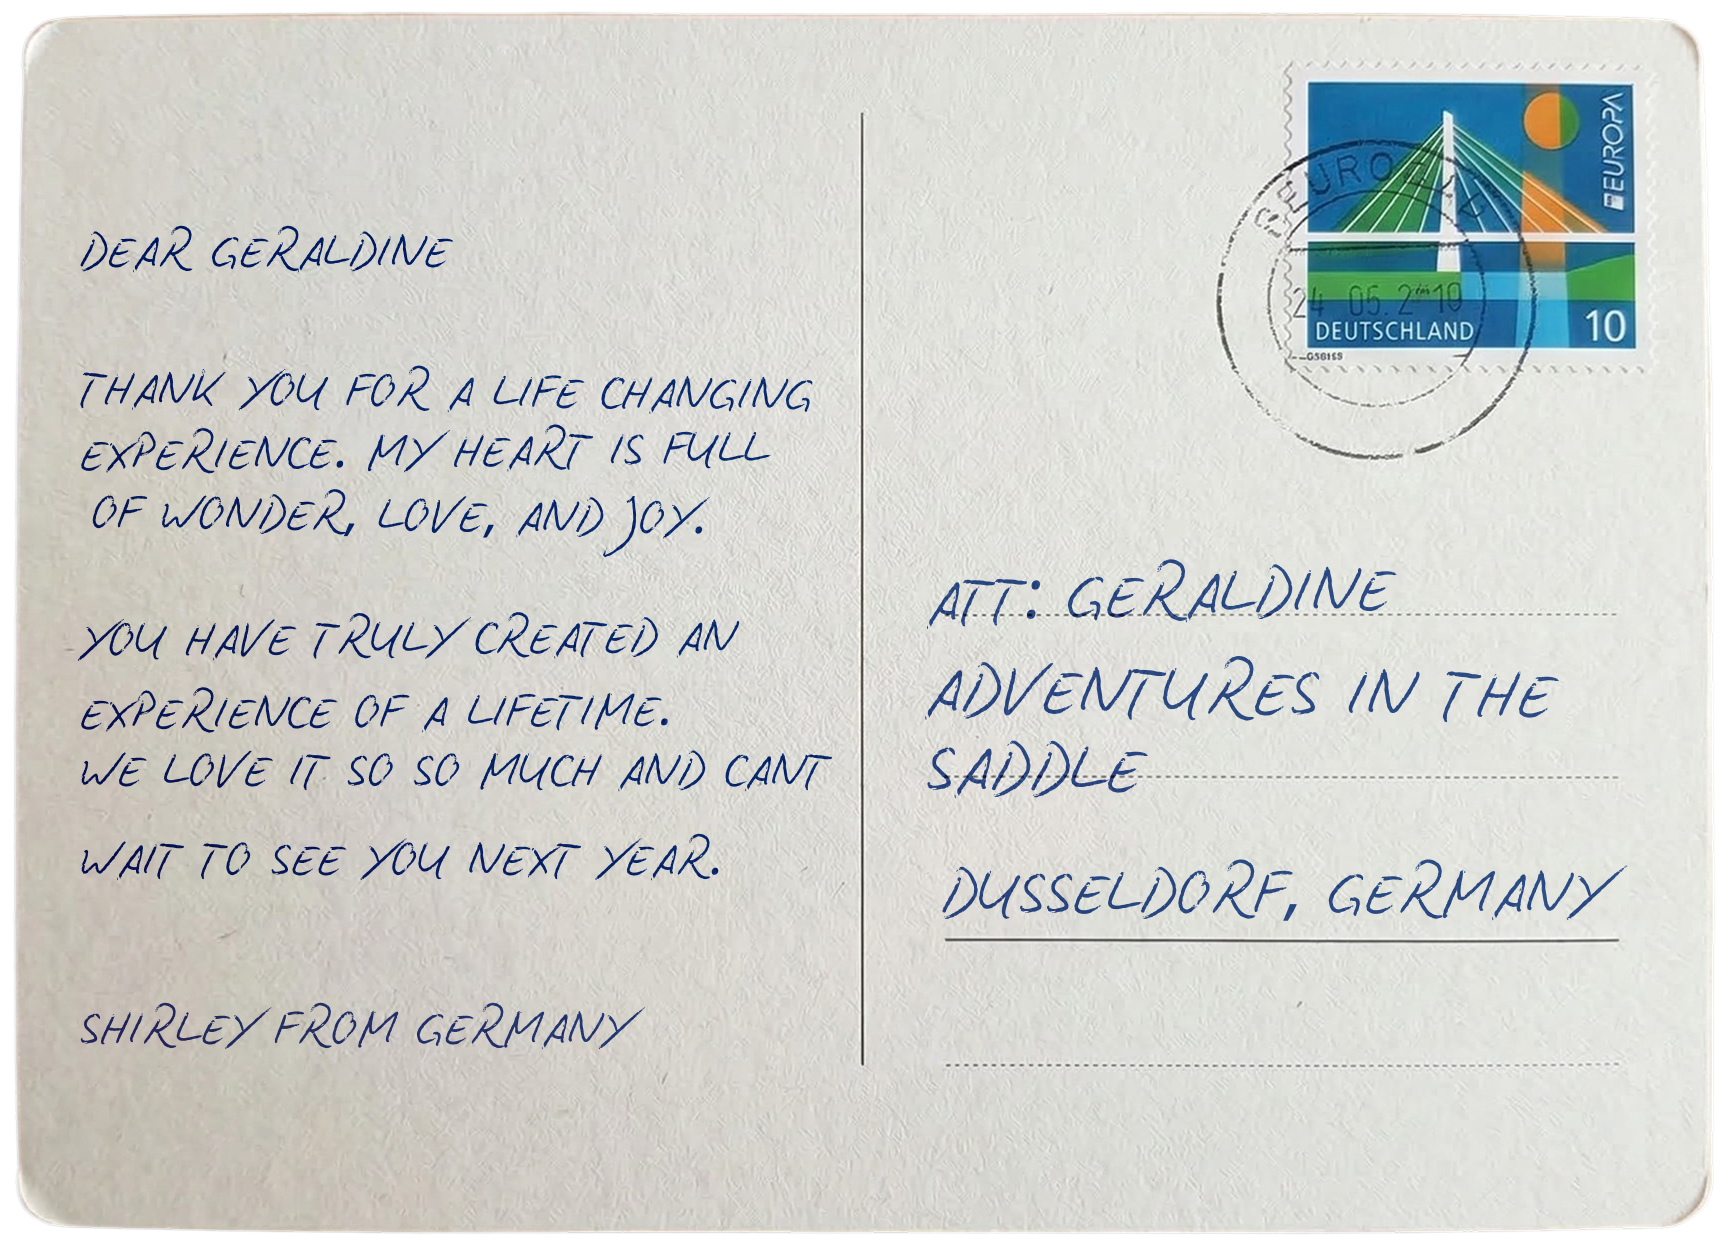 DEAR GERALDINE
THANK YOU FOR A LIFE CHANGING
EXPERIENCE. MY HEART IS FULL
OF WONDER, LOVE, AND JOY.
YOU HAVE TRULY CREATED AN
EXPERIENCE OF A LIFETIME.
WE LOVE IT SO SO MUCH AND CANT
WAIT TO SEE YOU NEXT YEAR.
SHIRLEY FROM GERMANY
EUROPA
24 05.2
10
DEUTSCHLAND
10
ATT: GERALDINE
ADVENTURES IN THE
SADDLE
DUSSELDORF, GERMANY